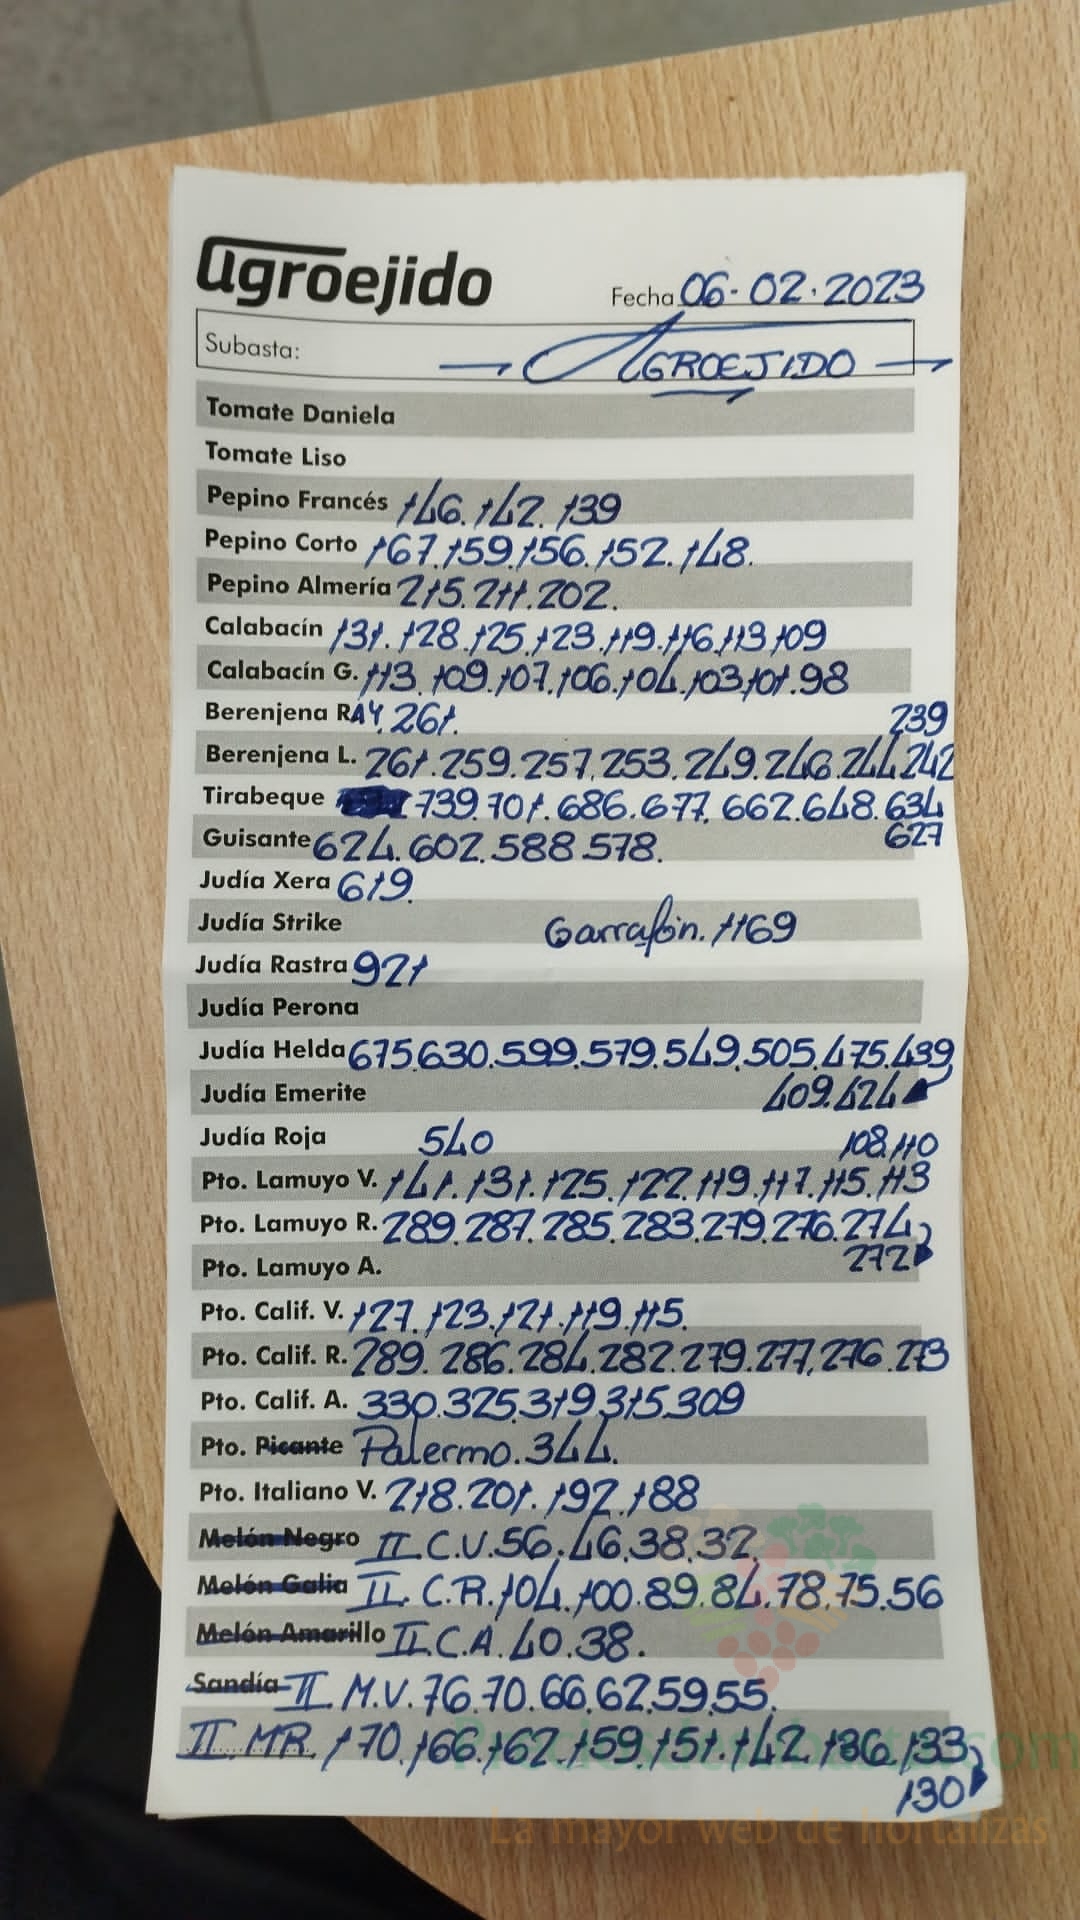 agroejido
Fecha 06-02.2023
Subasta: AGROEJIDO
Tomate Daniela
Tomate Liso
Pepino Francés 146.142.139
Pepino Corto 167.159.156.152.148.
Pepino Almería 215.211.202.
Calabacín 131.128.125.123.119.116.113.109
Calabacín G. 113.109.107.106.104.103.101.98
Berenjena RAY. 261. 239
Berenjena L. 261.259.257.253.249.246.244.242
Tirabeque 739.701.686.677.662.648.634
627
Guisante 624.602.588.578.
Judía Xera 619.
Judía Strike Garrafón. 1169
Judía Rastra 921
Judía Perona
Judía Helda 675.630.599.579.549.505.475.439
Judía Emerite 409.424
Judía Roja 540 108.110
Pto. Lamuyo V. 141.131.125.122.119.117.115.113
Pto. Lamuyo R. 289.287.285.283.279.276.274
272
Pto. Lamuyo A.
Pto. Calif. V. 127.123.121.119.115.
Pto. Calif. R. 289.286.284.282.279.277.276.273
Pto. Calif. A. 330.325.319.315.309
Pto. Picante Palermo.344.
Pto. Italiano V. 218.201.192.188
Melón Negro II C.V.56.46.38.32.
Melón Galia II. C.R.104.100.89.84.78.75.56
Melón Amarillo II.C.A.40.38.
Sandía II M.V.76.70.66.62.59.55.
II MR. 170.166.162.159.151.142.136.133
130
La mayor web de hortalizas